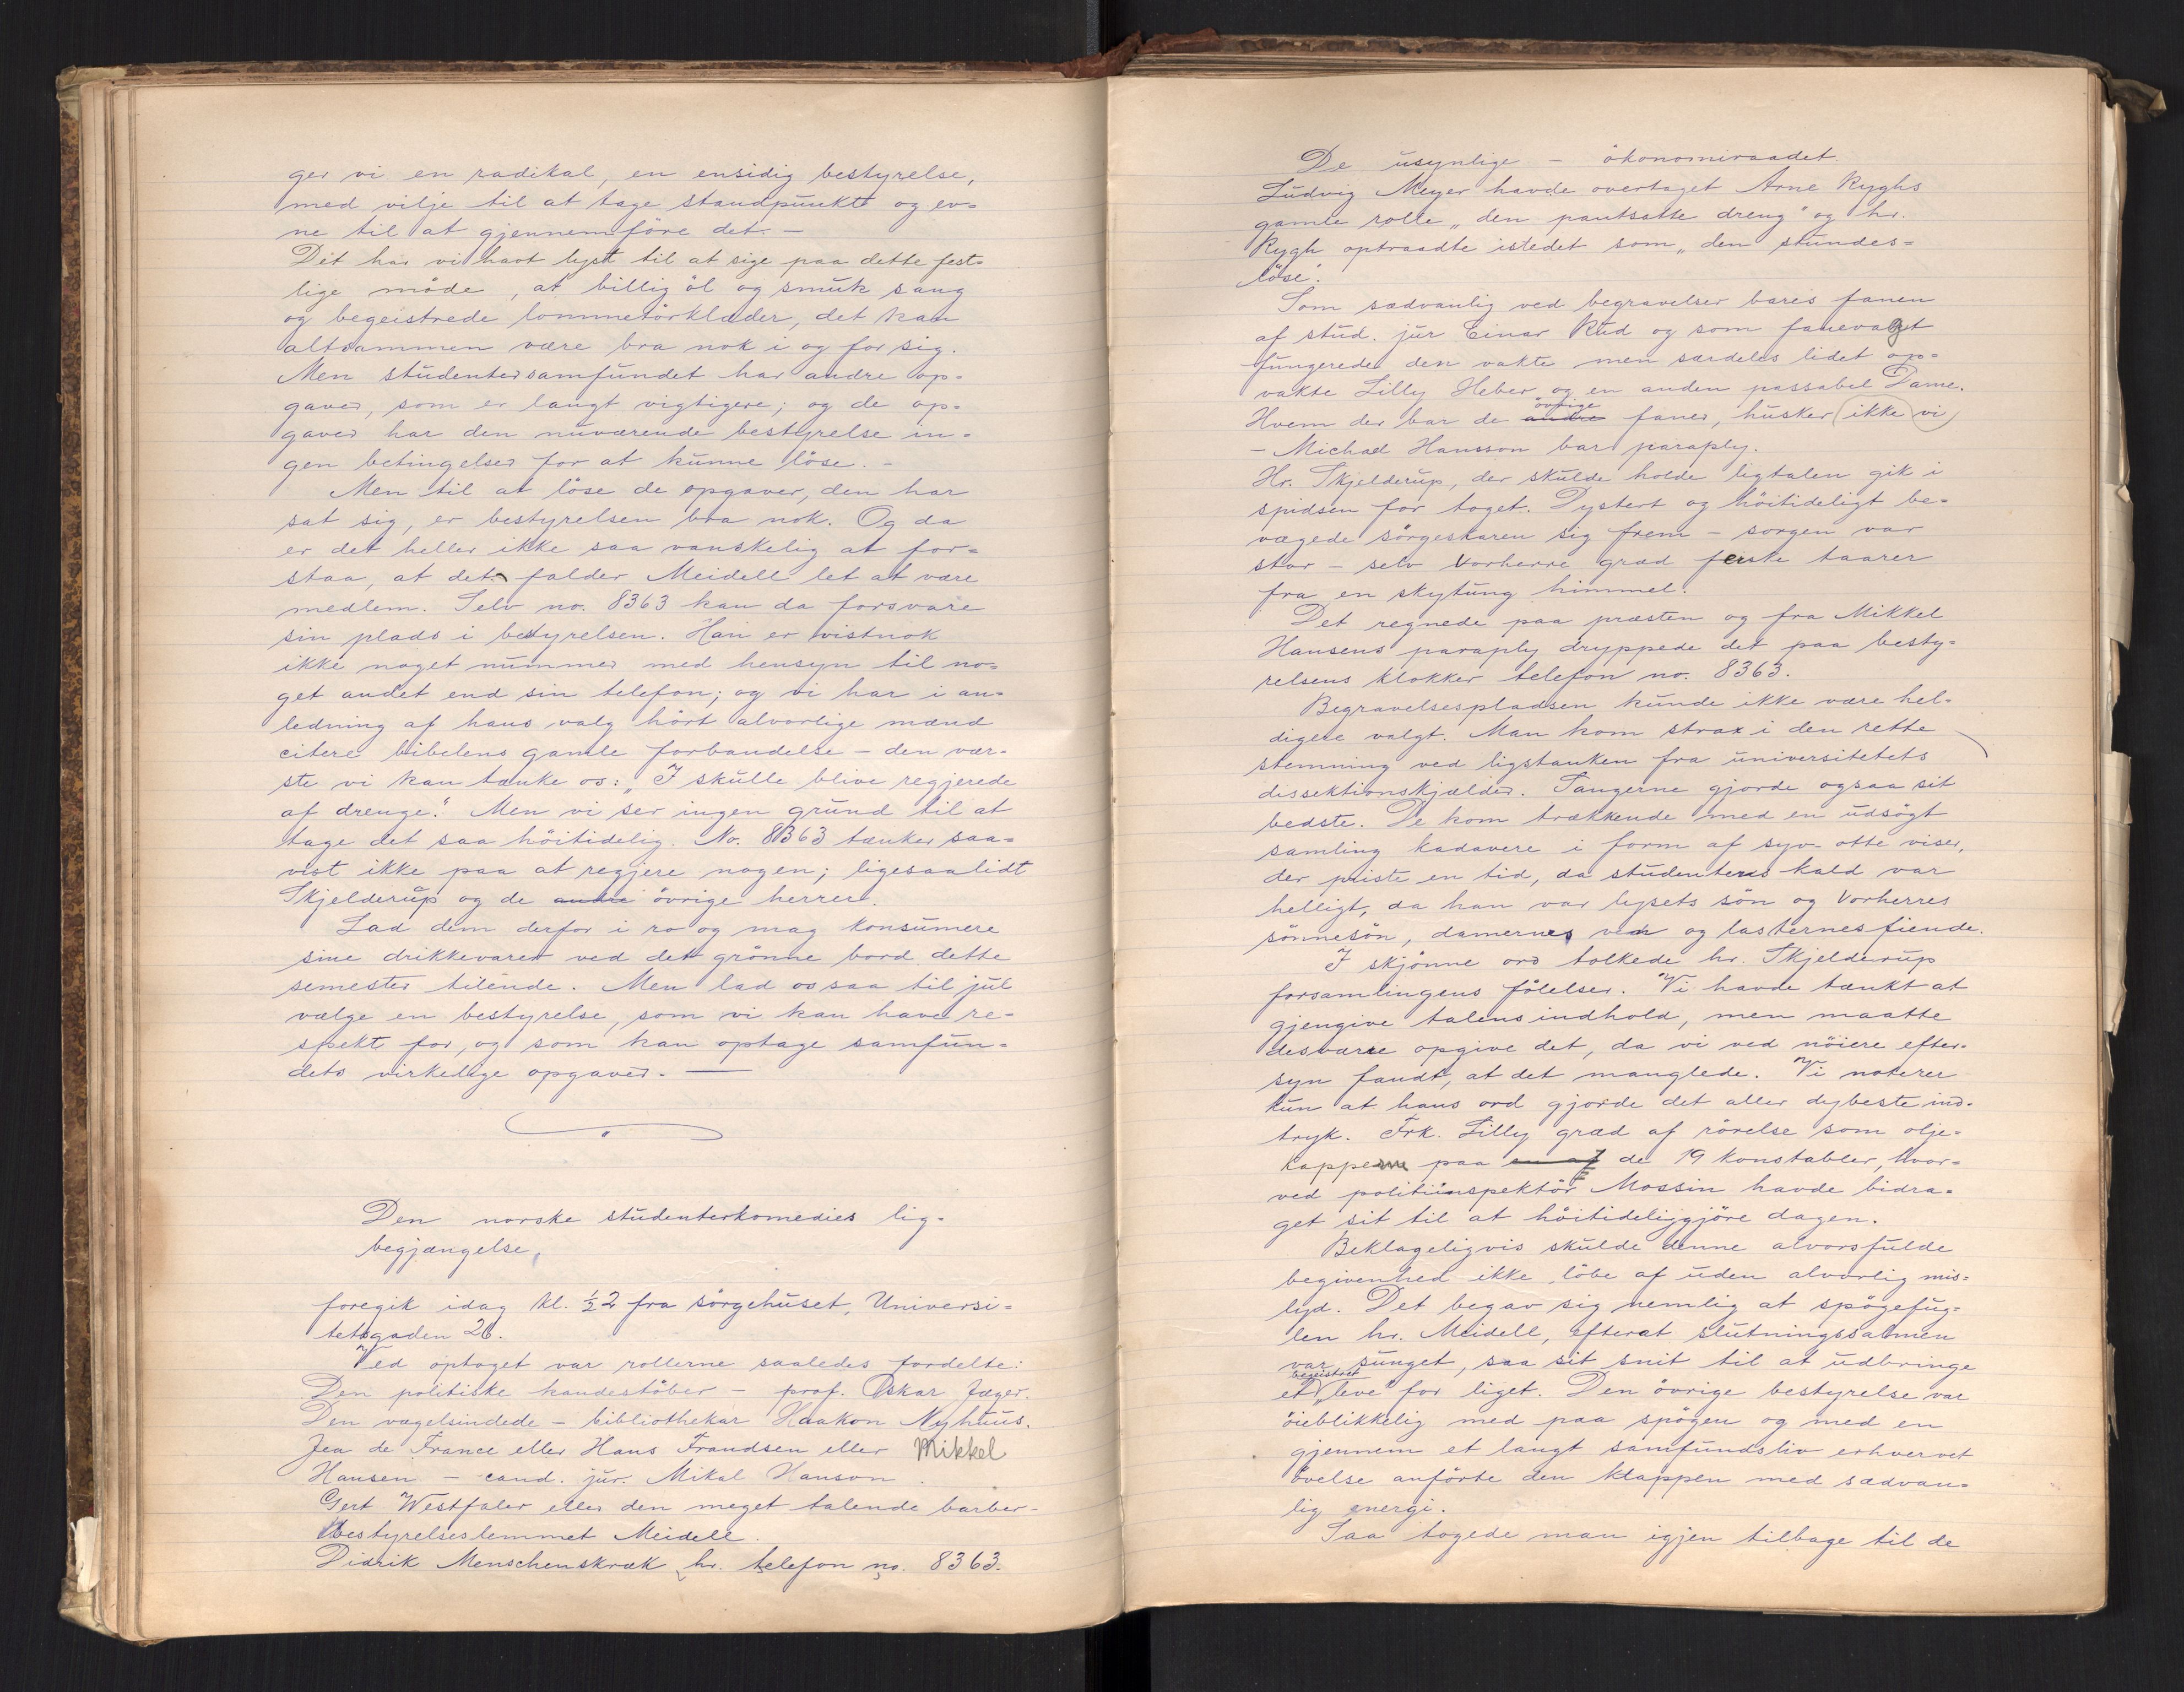 ger vi en radikal, en ensidig bestyrelse,
med vilje til at tage standpunkt og ev-
ne til at gjennemföre det. -
Det har vi havt lyst til at sige paa dette fest-
lige möde, at billig öl og smuk sang
og begeistrede lommetörklæder, det kan
altsammen være bra nok i og for sig.
Men studentersamfundet har andre op-
gaver, som er langt vigtigere; og de op-
gaver har den nuværende bestyrelse in-
gen betingelser for at kunne löse. -
Men til at löse de opgaver, den har
sat sig, er bestyrelsen bra nok. Og da
er det heller ikke saa vanskelig at for-
staa, at det falder Meidell let at være
medlem. Selv no. 8363 kan da forsvare
sin plads i bestyrelsen. Han er vistnok
ikke noget nummer med hensyn til no-
get andet end sin telefon; og vi har i an-
ledning af hans valg hört alvorlige mænd
citere bibelens gamle forbandelse - den vær-
ste vi kan tænke os: „I skulle blive regjerede
af drenge." Men vi ser ingen grund til at
tage det saa höitidelig. No. 8363 tænker saa-
vist ikke paa at regjere nogen; ligesaalidt
Skjelderup og de andre övrige herrer.
Lad dem derfor i ro og mag konsumere
sine drikkevarer ved det grönne bord dette
semester tilende. Men lad os saa til jul
vælge en bestyrelse, som vi kan have re-
spekt for, og som kan optage samfun-
dets virkelige opgaver. -
Den norske studenterkomedies lig-
begjængelse,
foregik idag kl. ½2 fra sörgehuset, Universi-
tetsgaden 26.
Ved optoget var rollerne saaledes fordelte:
Den politiske kandestöber - prof. Oskar Jæger.
Den vægelsindede - bibliothekar Haakon Nyhuus.
Jea de France eller Hans Frandsen eller Mikkel
Hansen - cand. jur. Mikal Hanson.
Gert Westfaler eller den meget talende barber -
bestyrelseslemmet Meidell.
Didrik Menschenskræk hr. telefon no. 8363.
De usynlige - ökonomiraadet.
Ludvig Meyer havde overtaget Arne Ryghs
gamle rolle „den pantsatte dreng" og hr.
Rygh optraadte istedet som „den stundes-
löse".
Som sædvanlig ved begravelser bares fanen
af stud. jur Einar Rud og som fanevagt
fungerede den vakte men særdeles lidet op-
vakte Lilly Heber og en anden passabel Dame.
Hvem der bar de andre övrige faner, husker ikke vi
- Michael Hansson bar paraply.
Hr. Skjelderup, der skulde holde ligtalen gik i
spidsen for toget. Dystert og höitideligt be-
vægede sörgeskaren sig frem - sorgen var
stor - selv Vorherre græd feiste taarer
fra en skytung himmel.
Det regnede paa præsten og fra Mikkel
Hansens paraply dryppede det paa besty-
relsens klokker telefon no. 8363.
Begravelsespladsen kunde ikke være hel-
digere valgt. Man kom strax i den rette
stemning ved ligstanken fra universitetets
dissektionskjælder. Sangerne gjorde ogsaa sit
bedste. De kom trækkende med en udsögt
samling kadavere i form af syv-otte viser,
der priste en tid, da studentens kald var
helligt, da han var lysets sön og Vorherres
sönnesön, damernes ven og lasternes fiende.
I skjönne ord tolkede hr. Skjelderup
forsamlingens fölelser. Vi havde tænkt at
gjengive talens indhold, men maatte
desværre opgive det, da vi ved nöiere efter-
syn fandt, at det manglede. Vi noterer
kun at hans ord gjorde det aller dybeste ind-
tryk. Frk. Lilly græd af rörelse som olje-
kapperne paa en af de 19 konstabler, hvor-
ved politiinspektör Mossin havde bidra-
get sit til at höitideliggjöre dagen.
Beklageligvis skulde denne alvorsfulde
begivenhed ikke löbe af uden alvorlig mis-
lyd. Det begav sig nemlig at spögefug-
len hr. Meidell, efterat slutningssalmen
var sunget, saa sit snit til at udbringe
et begeistret „leve" for liget. Den övrige bestyrelse var
öieblikkelig med paa spögen og med en
gjennem et langt samfundsliv erhvervet
övelse anförte den klappen med sædvan-
lig energi.
Saa togede man igjen tilbage til de